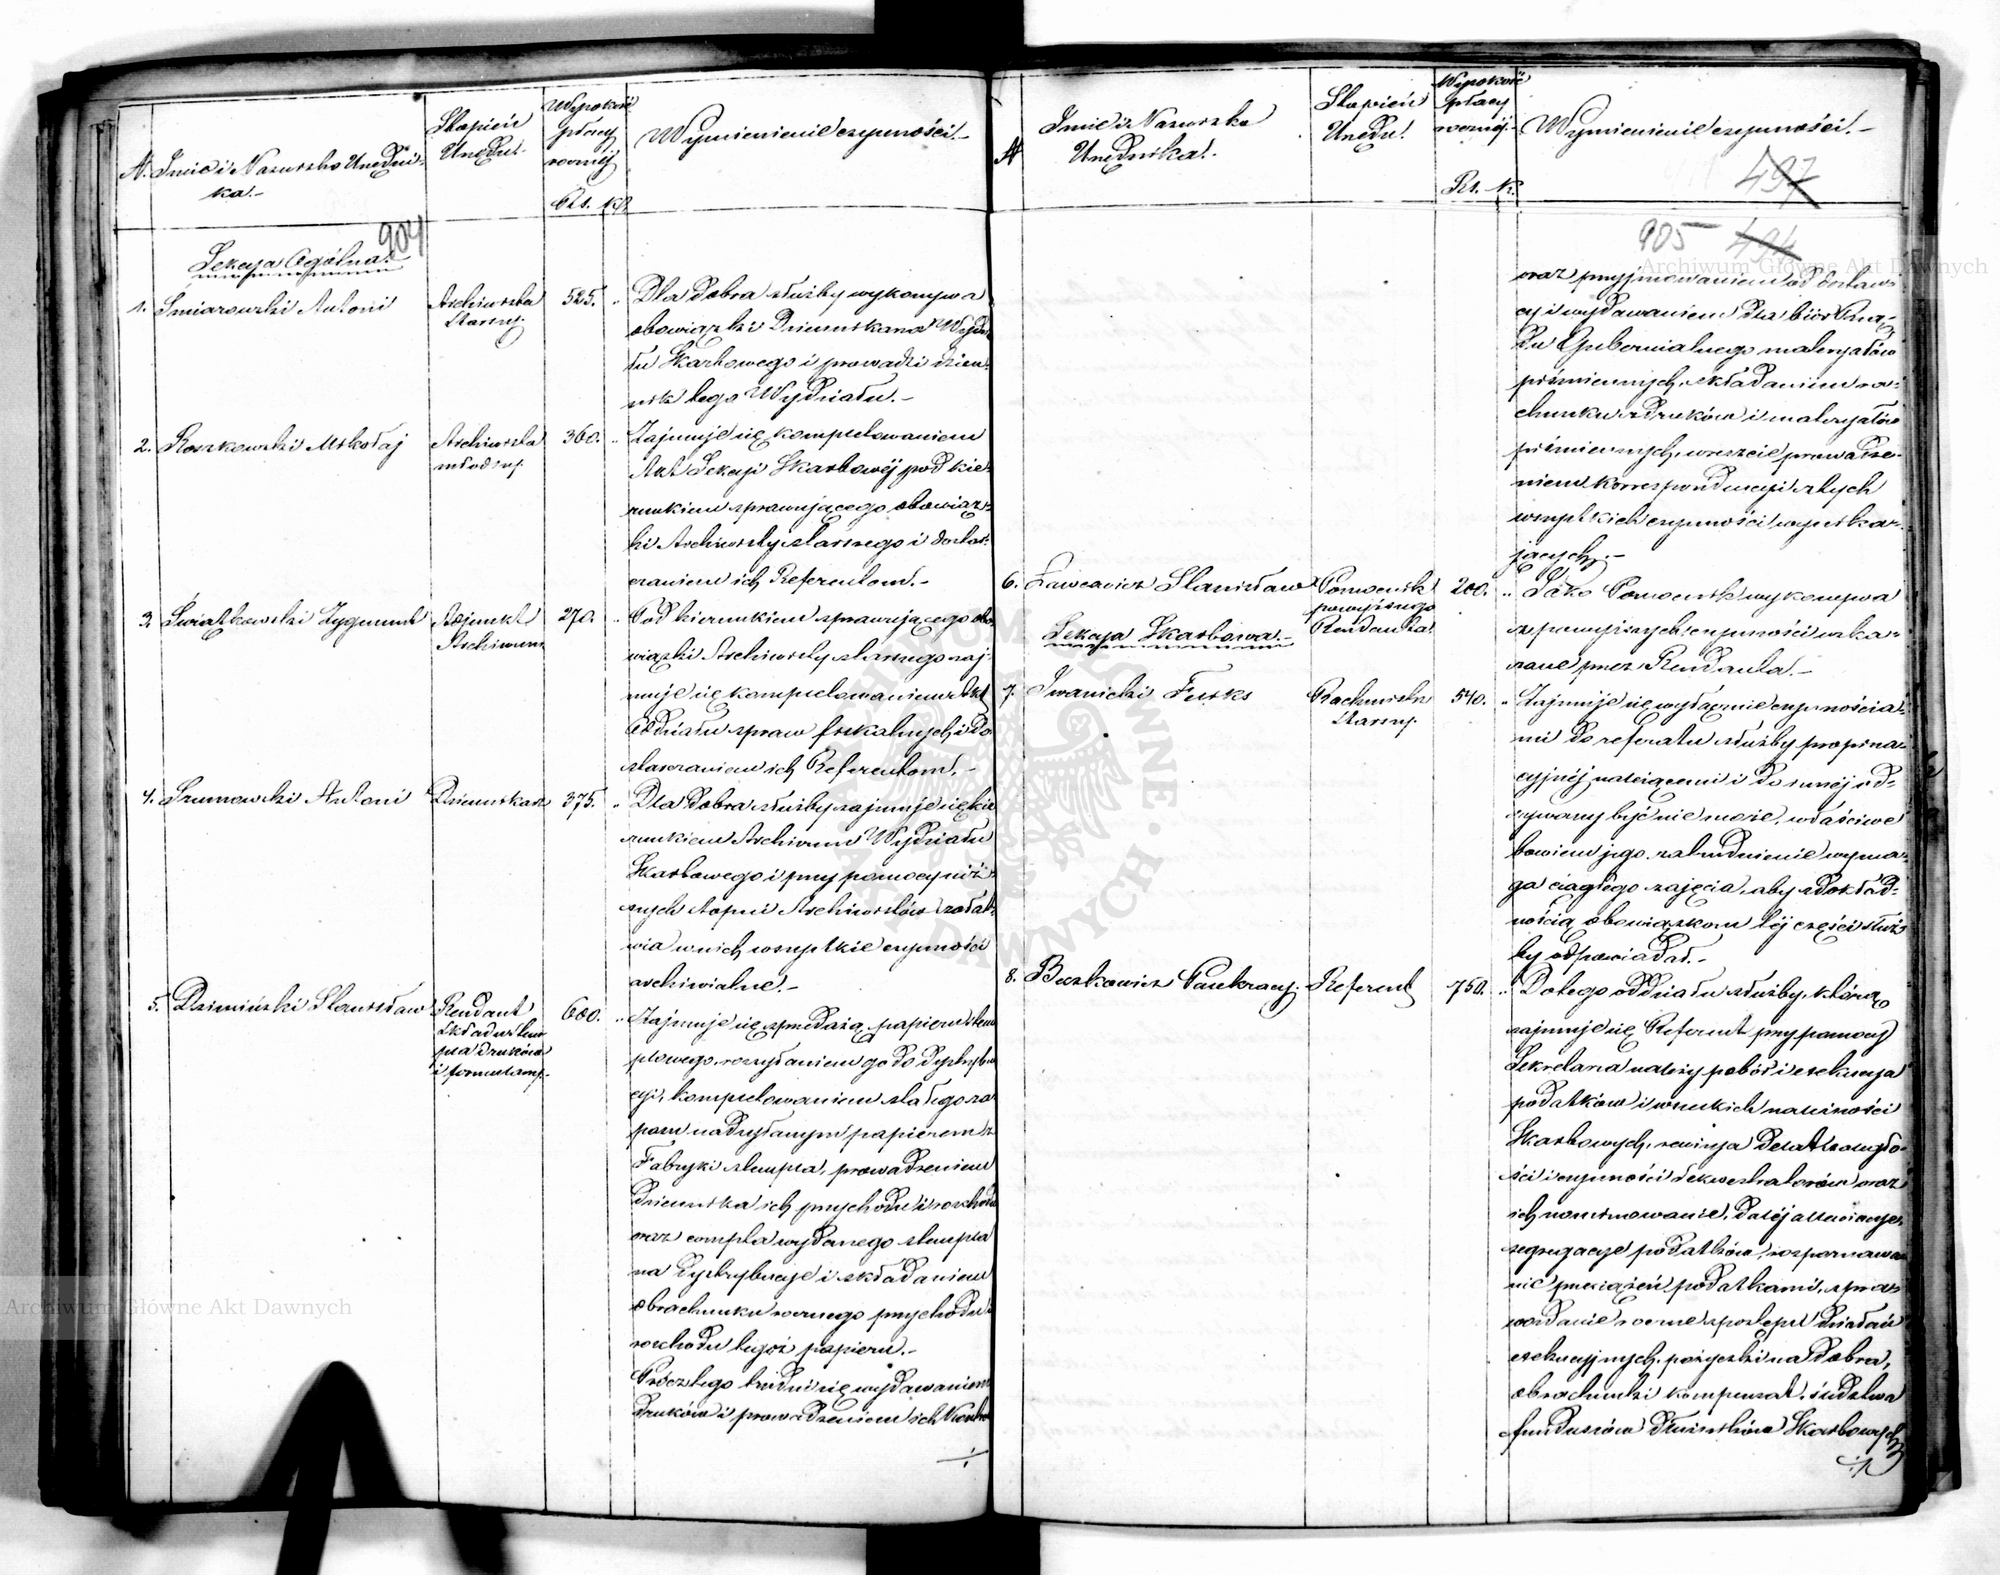 №. Imię i Nazwisko Urzędni-
ka.-
Stopień
Urzędu.
Wysokość
płacy
rocznéj
Rs. kp.
Wymienienie czynności.-
904
Sekcya Ogólna.
1. Smiarowski Antoni
Archiwista
Starszy.
525. „
Dla dobra służby wykonywa
obowiązki Dziennikarza Wydzia-
łu Skarbowego i prowadzi dzien-
nik tego Wydziału.-
2. Roszkowski Mikołaj
Archiwista
młodszy.
360. „
Zajmuje się kompletowaniem
Akt Sekcyi Skarbowéj pod kie-
runkiem sprawującego obowiąz-
ki Archiwisty starszego i dostar-
czaniem ich Referentom.-
3. Świątkowski Zygmunt
Adjunkt
Archiwum
270. „
Pod kierunkiem sprawującego obo-
wiązki Archiwisty starszego zaj-
muje się kompletowaniem Akt
Oddziału spraw fiskalnych i do
starczaniem ich Referentom.-
4. Szumowski Antoni
Dziennikarz
375. „
Dla dobra służby zajmuje się kie
runkiem Archiwum Wydziału
Skarbowego i przy pomocy niż-
szych stopni Archiwistów załat-
wia w nich wszystkie czynności
archiwialne.-
5. Dziemiński Stanisław
Rendant
Składu stem
pla druków
i formularzy.-
600. „
Zajmuje się sprzedażą papieru stem
plowego, rozsyłaniem go do dystrybu
cyi, kompletowaniem stałego za
pasu nadsyłanym papierem z
Fabryki stempla, prowadzeniem
Dziennika ich przychodu i rozchodu
oraz compta wydanego stempla
na Dystrybucye i składaniem
obrachunku rocznego przychodu i
rozchodu tegoż papieru.-
Prócz tego trudni się wydawaniem
druków i prowadzeniem ich Kontro
./.
№
Imię i Nazwisko
Urzędnika.
Stopień
Urzędu.
Wysokość
płacy
rocznéj.
Rs. k.
Wymienienie czynności.-
497
905 494
oraz przyjmowaniem od dostaw-
cy i wydawaniem dla biór Rzą-
du Gubernialnego materyałów
piśmiennych, składaniem ra-
chunku z druków i materyałów
piśmiennych, wreszcie prowadze-
niem korrespondencyi z tych
wszystkich czynności wynika-
jących.-
6. Ławcewicz Stanisław
Pomocnik
powyższego
Rendanta.
200. „
Jako Pomocnik wykonywa
z powyższych czynności wska-
zane przez Rendanta.-
Sekcya Skarbowa.-
7. Iwanicki Feliks
Rachmistrz
Starszy.
540. „
Zajmuje się wyłącznie czynnościa-
mi do referatu służby propina-
cyjnéj należącemi i do innéj od-
rywany być nie może, właściwe
bowiem jego zatrudnienie wyma-
ga ciągłego zajęcia, aby z dokład-
nością obowiązkom téj części służ-
by odpowiadał.-
8. Buzkowicz Pankracy.
Referent
750. „
Do tego oddziału służby, którą
zajmuje się Referent przy pomocy
Sekretarza należy pobór i exekucya
podatków i wszelkich należności
Skarbowych, rewizya Delat zaległo-
ści i czynności sekwestratorów oraz
ich nominowanie, daléj
segregacye podatków, rozpoznawa
nie przeciążeń podatkami, spra-
wozdanie roczne z postępu działań
exekucyjnych, pożyczki na dobra,
obrachunki kompensat, śledztwa
funduszów dłużników Skarbowych
./.
Archiwum Główne Akt Dawnych
Archiwum Główne Akt Dawnych
ARCHIWUM GŁÓWNE AKT DAWNYCH